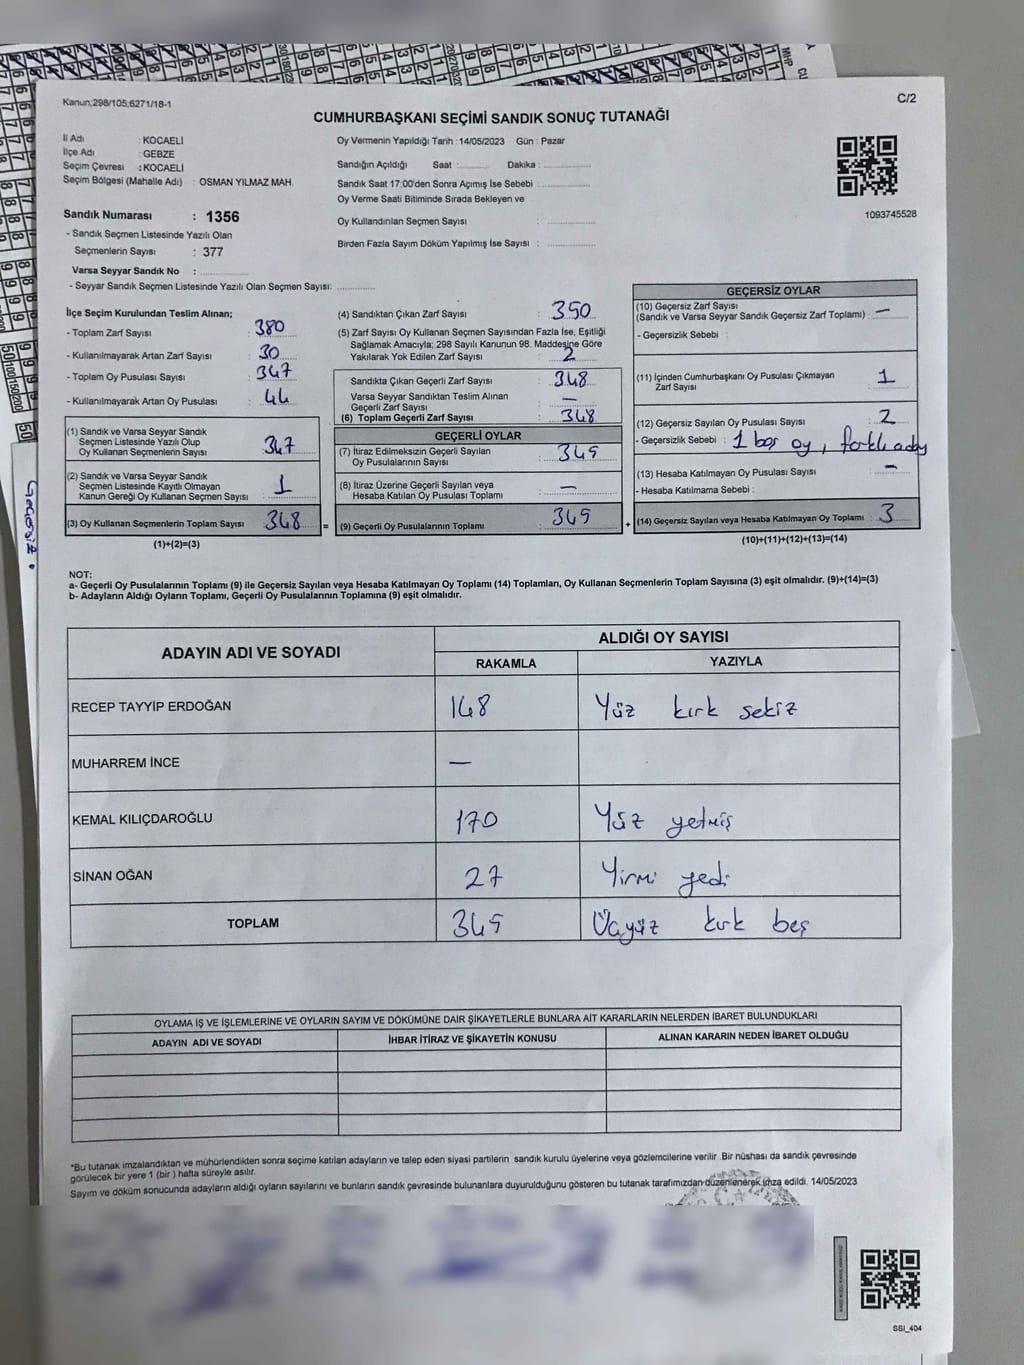 Kanun;298/105;6271/18-1
C/2
CUMHURBAŞKANI SEÇİMİ SANDIK SONUÇ TUTANAĞI
İl Adı : KOCAELİ
İlçe Adı : GEBZE
Seçim Çevresi : KOCAELİ
Seçim Bölgesi (Mahalle Adı) : OSMAN YILMAZ MAH.
Sandık Numarası : 1356
- Sandık Seçmen Listesinde Yazılı Olan
Seçmenlerin Sayısı : 377
Varsa Seyyar Sandık No :
- Seyyar Sandık Seçmen Listesinde Yazılı Olan Seçmen Sayısı:
Oy Vermenin Yapıldığı Tarih : 14/05/2023 Gün : Pazar
Sandığın Açıldığı Saat : Dakika :
Sandık Saat 17:00'den Sonra Açımış İse Sebebi :
Oy Verme Saati Bitiminde Sırada Bekleyen ve
Oy Kullandırılan Seçmen Sayısı :
Birden Fazla Sayım Döküm Yapılmış İse Sayısı :
1093745528
İlçe Seçim Kurulundan Teslim Alınan;
- Toplam Zarf Sayısı : 380
- Kullanılmayarak Artan Zarf Sayısı : 30
- Toplam Oy Pusulası Sayısı : 347
- Kullanılmayarak Artan Oy Pusulası : 44
(1) Sandık ve Varsa Seyyar Sandık
Seçmen Listesinde Yazılı Olup
Oy Kullanan Seçmenlerin Sayısı : 347
(2) Sandık ve Varsa Seyyar Sandık
Seçmen Listesinde Kayıtlı Olmayan
Kanun Gereği Oy Kullanan Seçmen Sayısı : 1
(3) Oy Kullanan Seçmenlerin Toplam Sayısı : 348 =
(1)+(2)=(3)
(4) Sandıktan Çıkan Zarf Sayısı : 350
(5) Zarf Sayısı Oy Kullanan Seçmen Sayısından Fazla İse, Eşitliği
Sağlamak Amacıyla; 298 Sayılı Kanunun 98. Maddesine Göre
Yakılarak Yok Edilen Zarf Sayısı : 2
Sandıkta Çıkan Geçerli Zarf Sayısı : 348
Varsa Seyyar Sandıktan Teslim Alınan
Geçerli Zarf Sayısı : —
(6) Toplam Geçerli Zarf Sayısı : 348
GEÇERLİ OYLAR
(7) İtiraz Edilmeksizin Geçerli Sayılan
Oy Pusulalarının Sayısı : 345
(8) İtiraz Üzerine Geçerli Sayılan veya
Hesaba Katılan Oy Pusulası Toplamı : —
(9) Geçerli Oy Pusulalarının Toplamı : 345 +
GEÇERSİZ OYLAR
(10) Geçersiz Zarf Sayısı
(Sandık ve Varsa Seyyar Sandık Geçersiz Zarf Toplamı) : —
- Geçersizlik Sebebi :
(11) İçinden Cumhurbaşkanı Oy Pusulası Çıkmayan
Zarf Sayısı : 1
(12) Geçersiz Sayılan Oy Pusulası Sayısı : 2
- Geçersizlik Sebebi : 1 boş oy, farklı aday
(13) Hesaba Katılmayan Oy Pusulası Sayısı : —
- Hesaba Katılmama Sebebi :
(14) Geçersiz Sayılan veya Hesaba Katılmayan Oy Toplamı : 3
(10)+(11)+(12)+(13)=(14)
NOT:
a- Geçerli Oy Pusulalarının Toplamı (9) ile Geçersiz Sayılan veya Hesaba Katılmayan Oy Toplamı (14) Toplamları, Oy Kullanan Seçmenlerin Toplam Sayısına (3) eşit olmalıdır. (9)+(14)=(3)
b- Adayların Aldığı Oyların Toplamı, Geçerli Oy Pusulalarının Toplamına (9) eşit olmalıdır.
ADAYIN ADI VE SOYADI
ALDIĞI OY SAYISI
RAKAMLA YAZIYLA
RECEP TAYYİP ERDOĞAN 148 Yüz kırk sekiz
MUHARREM İNCE —
KEMAL KILIÇDAROĞLU 170 Yüz yetmiş
SİNAN OĞAN 27 Yirmi yedi
TOPLAM 345 Üçyüz kırk beş
OYLAMA İŞ VE İŞLEMLERİNE VE OYLARIN SAYIM VE DÖKÜMÜNE DAİR ŞİKAYETLERLE BUNLARA AİT KARARLARIN NELERDEN İBARET BULUNDUKLARI
ADAYIN ADI VE SOYADI İHBAR İTİRAZ VE ŞİKAYETİN KONUSU ALINAN KARARIN NEDEN İBARET OLDUĞU
*Bu tutanak imzalandıktan ve mühürlendikten sonra seçime katılan adayların ve talep eden siyasi partilerin sandık kurulu üyelerine veya gözlemcilerine verilir .Bir nüshası da sandık çevresinde
görülecek bir yere 1 (bir ) hafta süreyle asılır.
Sayım ve döküm sonucunda adayların aldığı oyların sayılarını ve bunların sandık çevresinde bulunanlara duyurulduğunu gösteren bu tutanak tarafımızdan düzenlenerek imza edildi. 14/05/2023
SSİ_404